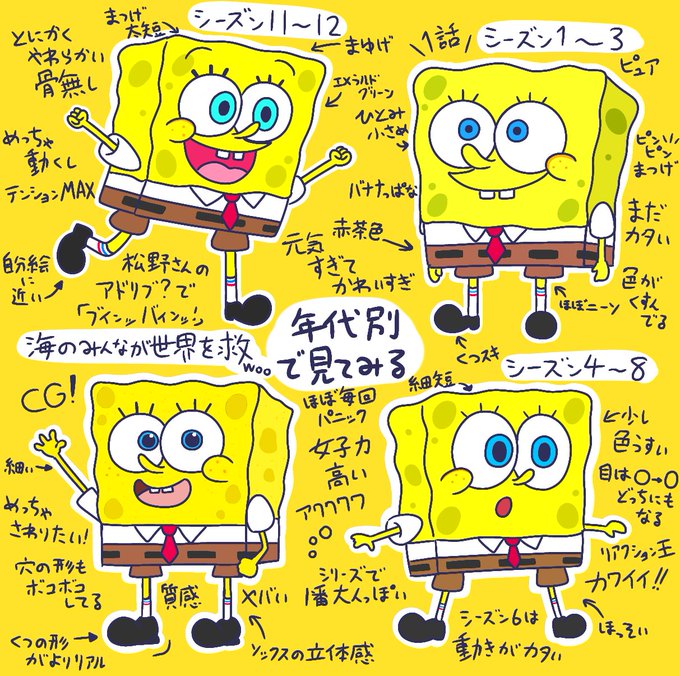 とにかく
やわらかい
骨無し
まつげ
太短
シーズン11〜12
まゆげ
エメラルド
グリーン
めっちゃ
動くし
テンションMAX
自分絵
に
近い
松野さんの
アドリブ?で
「ブインッバインッ!」
\1話/
シーズン1〜3
ピュア
ひとみ
小さめ
ピンッ
ピン
まつげ
バナナっぱな
まだ
カタい
赤茶色
元気
すぎて
かわいすぎ
色が
くすん
でる
ほぼニーン
くつスキ
年代別
で見てみる
海のみんなが世界を救
Woo
CG!
細い
めっちゃ
さわりたい!
穴の形も
ボコボコ
してる
質感
ヤバい
くつの形
がよりリアル
ソックスの立体感
シーズン4〜8
細短
ほぼ毎回
パニック
女子力
高い
アワワワワ
シリーズで
1番大人っぽい
少し
色うすい
目は○→0
どっちにも
なる
リアクション王
カワイイ!!
ほっそい
シーズン6は
動きがカタい